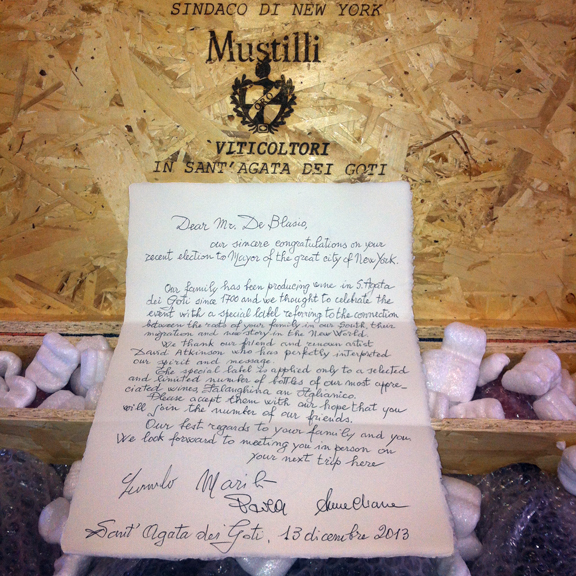 SINDACO DI NEW YORK
Mustilli
VITICOLTORI
IN SANT'AGATA DEI GOTI
Dear Mr. De Blasio,
our sincere congratulations on your
recent election to Mayor of the great city of New York.
Our family has been producing wine in S. Agata
dei Goti since 1700 and we thought to celebrate the
event with a special label referring to the connection
between the roots of your family in our South, their
migration and new story in the New World.
We thank our friend and renown artist
David Atkinson who has perfetly interpreted
our spirit and message.
The special label is applied only to a selected
and limited number of bottles of our most appre-
ciated wines Falanghina an Aglianico.
Please acept them with our hope that you
will join the number of our friends.
Our best regards to your family and you
We look forward to meeting you in person on
your next trip here
Marili
Paola Anna Chiara
Sant'Agata dei Goti, 13 dicembre 2013